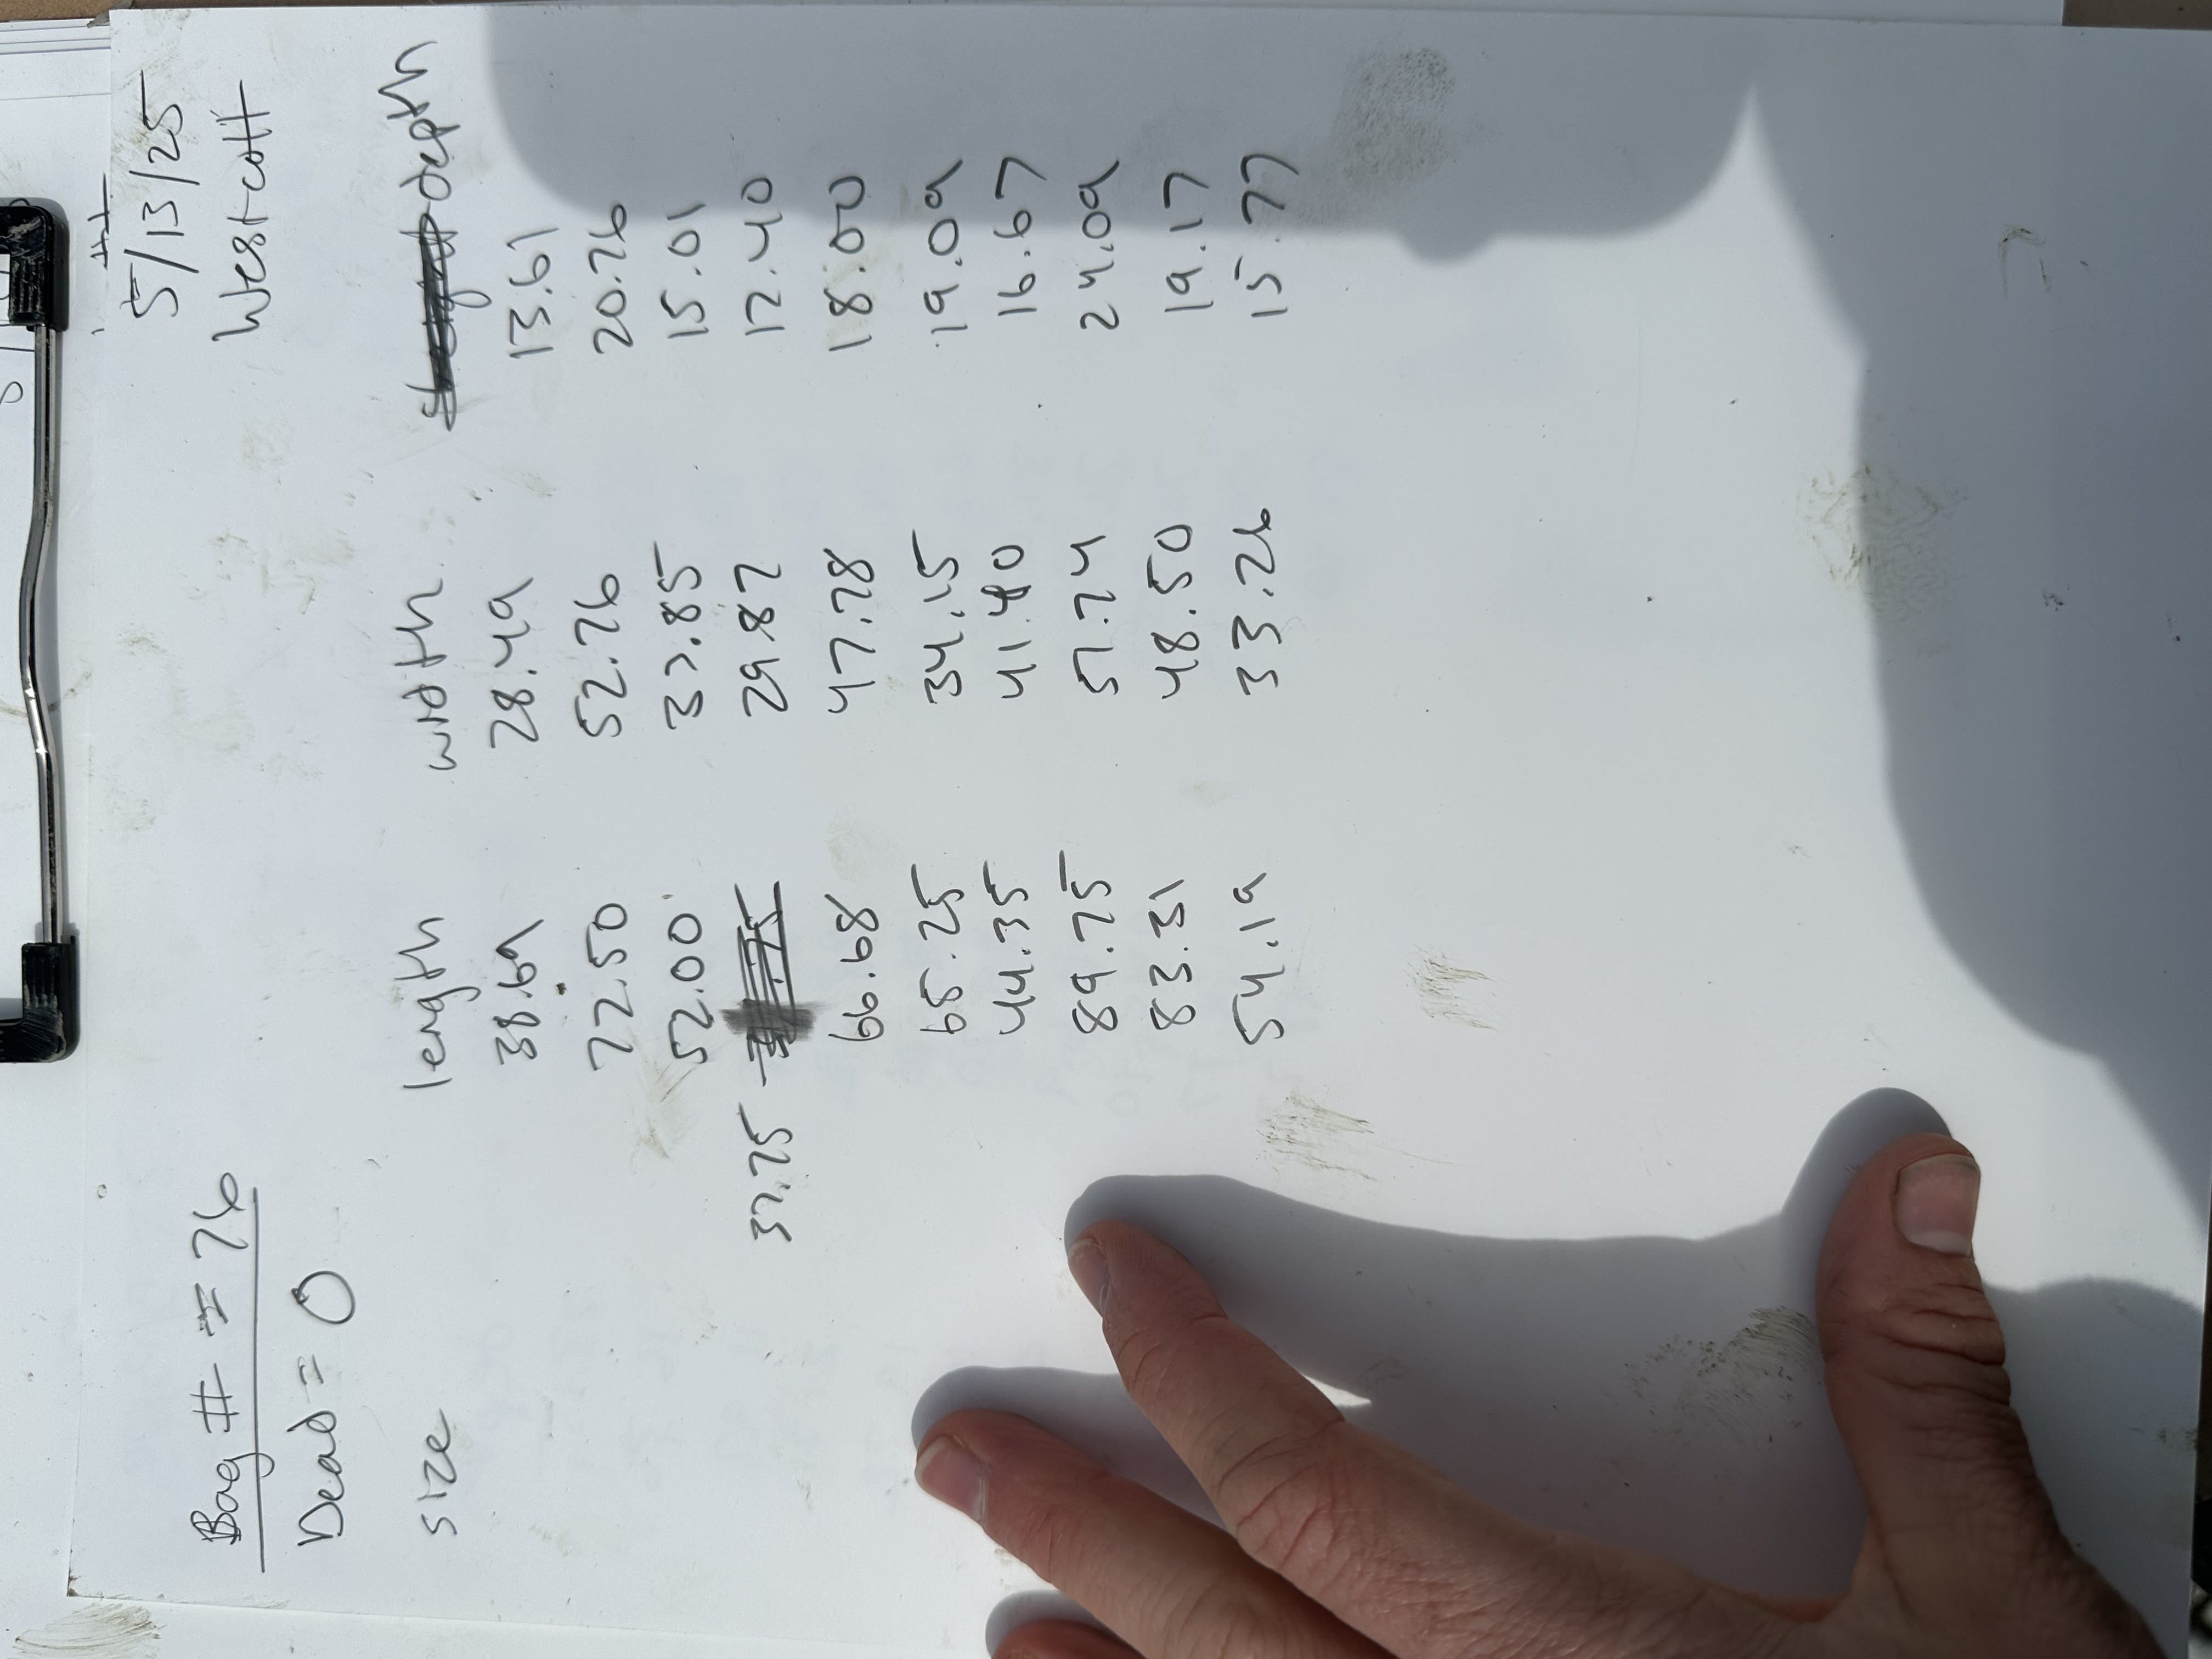 5/13/25
Westcott
Bag # = 76
Dead = 0
size length width depth
38.69 28.49 13.61
72.50 52.76 20.76
52.00 37.85 15.01
37.75 29.82 12.40
66.68 47.78 18.00
65.25 34.15 19.09
44.35 41.40 16.67
89.75 57.74 24.09
83.31 48.50 19.17
54.19 33.26 15.77